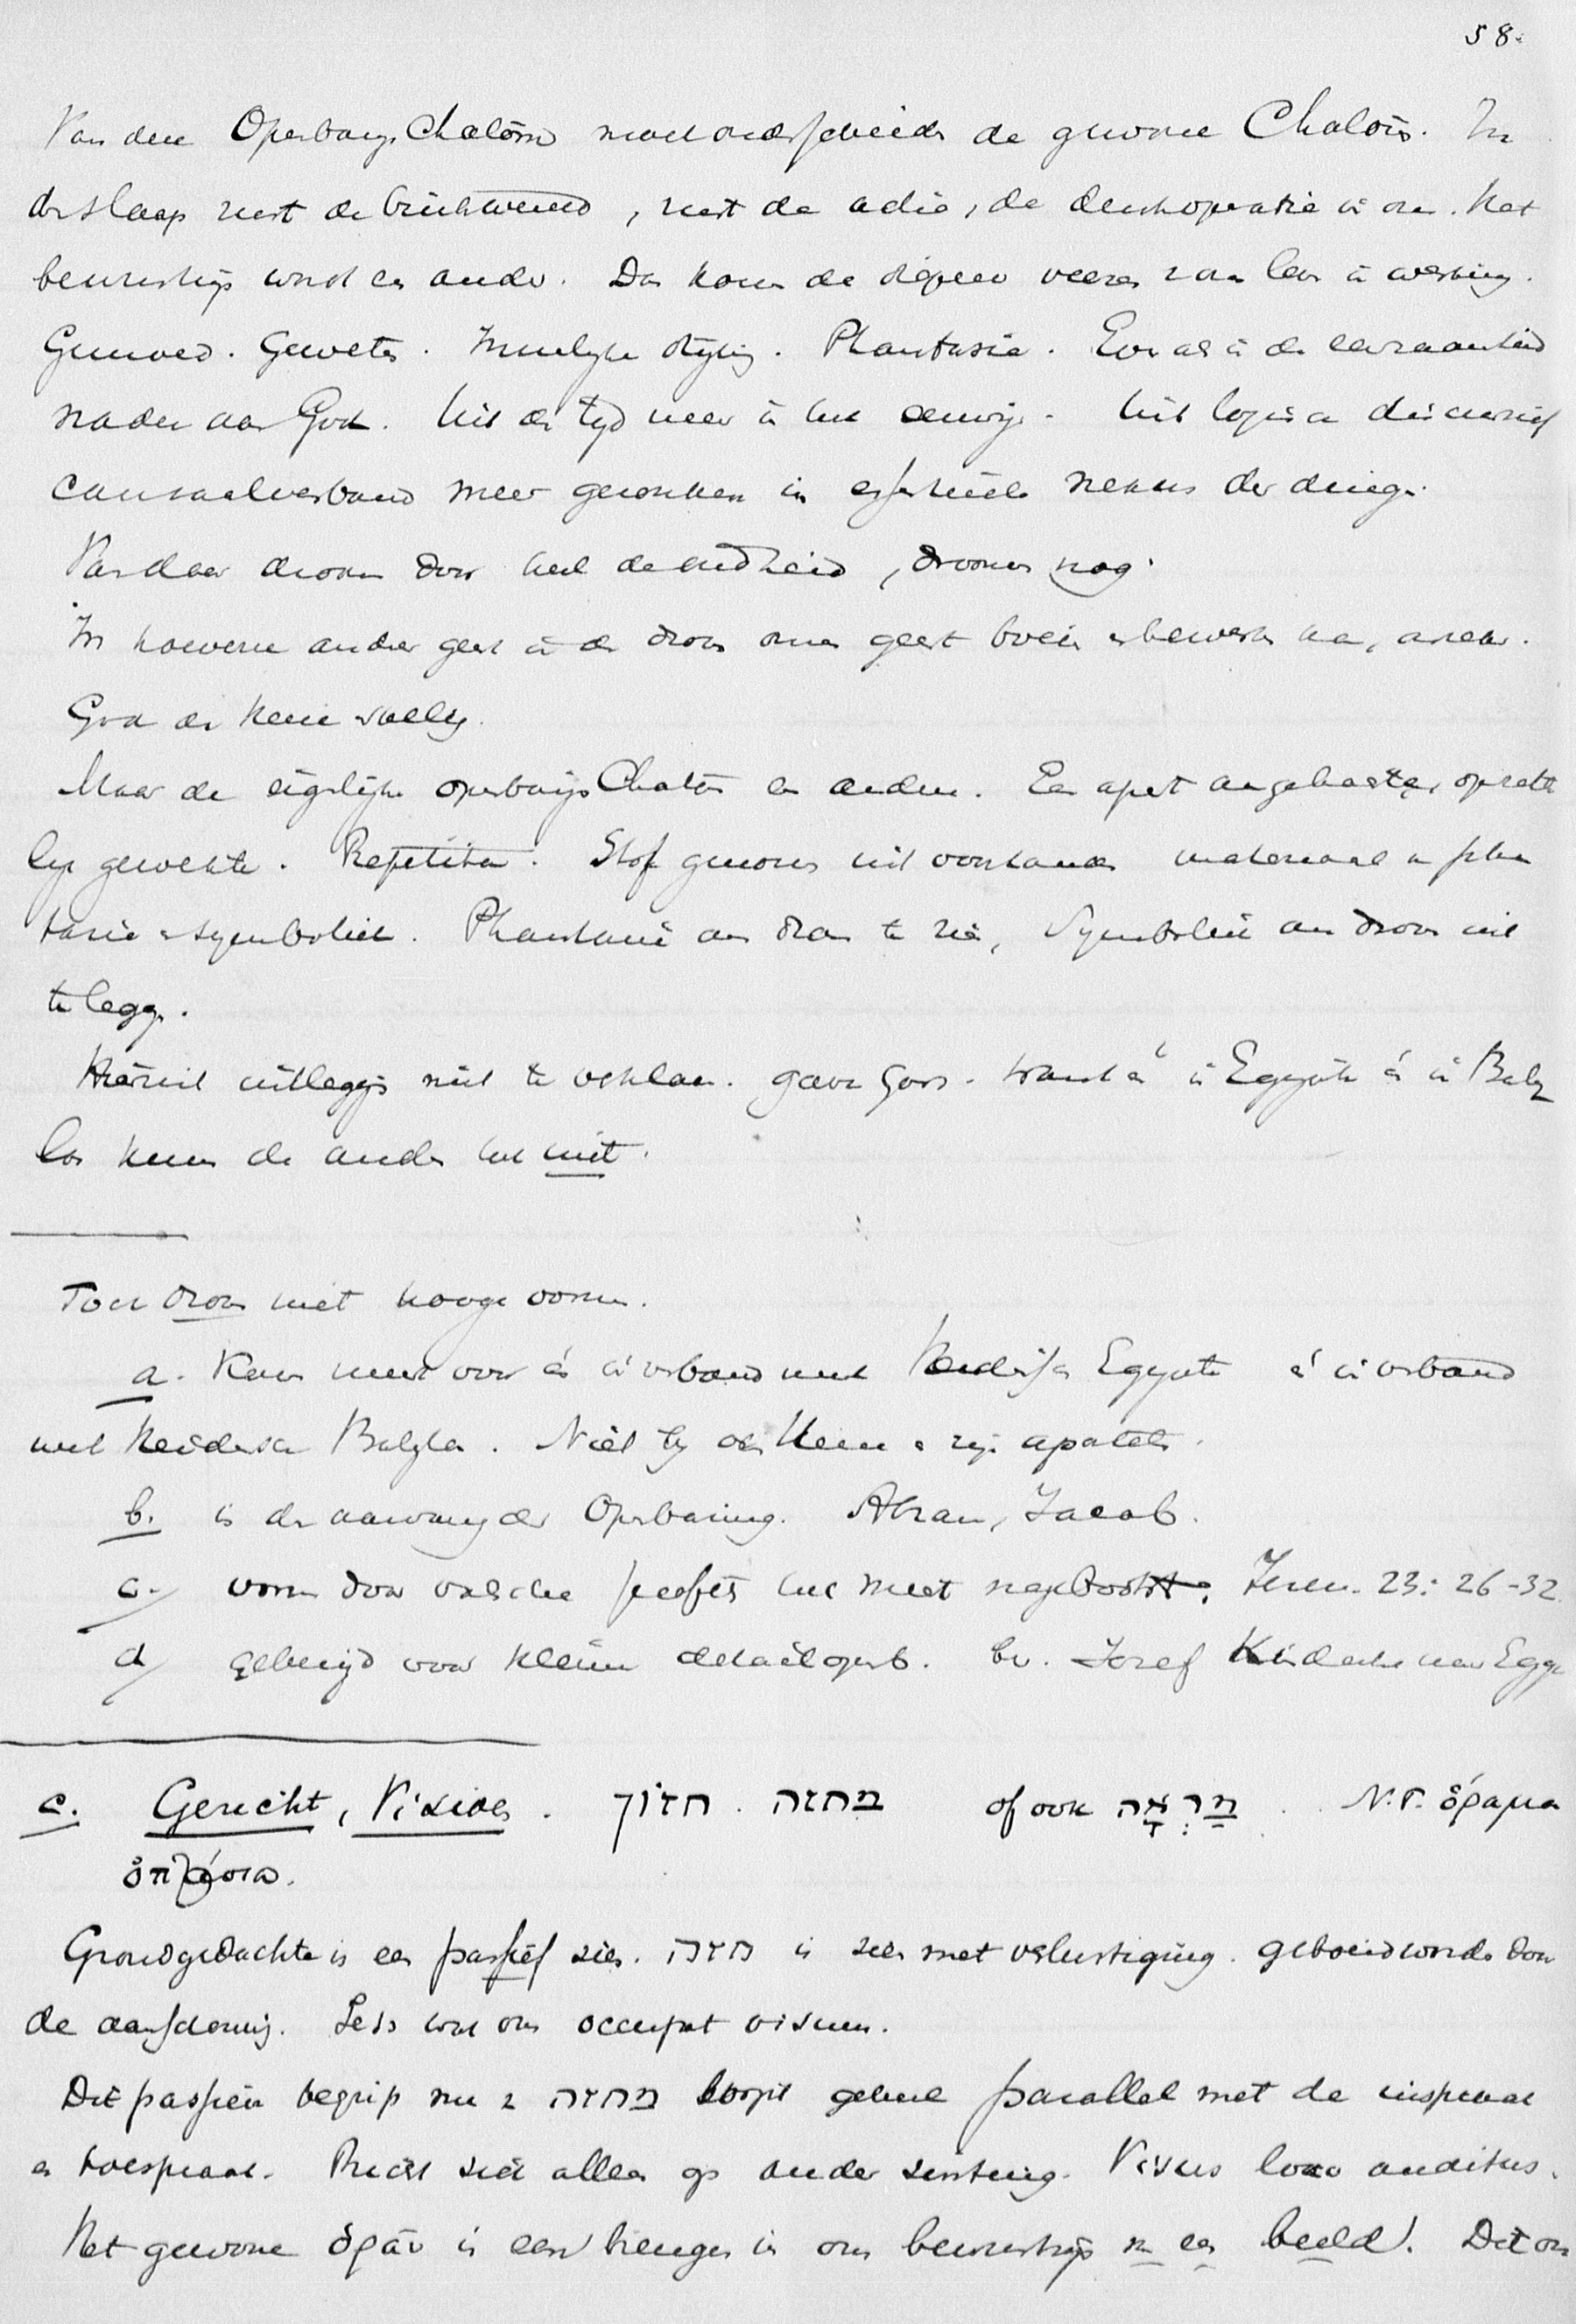 58.
Van den Openbarings Chalôm moet onderscheiden de gewone Chalôm. In
de slaap rust de buitenwereld, rust de actie, de denkoperatie in ons. Het
bewustzijn wordt een ander. Dan komen de diepere van leven in werking.
Gemoed. Geweten. Phantasie. Even als in de eenzaamheid
nader aan God. Uit de tijd meer in het eeuwige. Uit logisch discursief
causaalverband meer gezonken in essentiëele nexus der dingen.
Vandaar droomen door heel de oudheid, droomen nog.
In hoeverre andere geest in de droom onze geest boeien en bewerken kan,
God de Heere
Maar de eigenlijke openbarings Chalôm een andere. Een apart
lijk gewekte. Repetitie. Stof genomen uit voorhanden materiaal en phan
tasie en symboliek. Phantasie om droom te zien, Symboliek om droom uit
te leggen.
Hieruit uitlegging niet te verklaren. gave Gods. want én in Egypte én in Baby
lon kunnen de anderen het niet.
Toch droom niet hooge vorm.
a. Komt meest voor én in verband met Heidensch Egypte én in verband
met Heidensch Babylon. Niet bij den Heere en zijn apostelen.
b. is de aanvang der Openbaring. Abram, Jacob.
c. vorm door valsche profeten het meest nagebootst. Jerem. 23: 26-32.
d gebezigd voor kleine detailopenb. bv. Jozef Kindeke naar Egyp
c. Gezicht, Visioen. חזון. מחזה of ook מַרְאָה. N.T. ὅραμα
ὀπτασια.
Grondgedachte is een passief zien. חזה is zien met verlustiging. geboeid worden door
de aanschouwing. Iets wat ons occupat visum.
Dit passieve begrip nu in מחזה loopt geheel parallel met de inspraak
en toespraak. Richt zich alleen op ander zintuig. Visus loco auditus.
Het gewone ὁρᾶν is een brengen in ons bewustzijn van een beeld. Dit ons